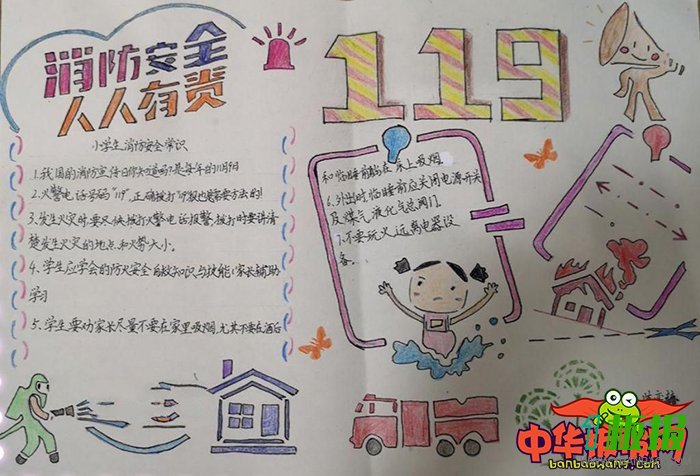 消防安全
人人有责
119
小学生消防安全常识
1.我国的消防宣传日你知道吗?是每年的11月9日
2.火警电话号码"119",正确拨打119报也是需要方法的!
3.发生火灾时要尽快拨打火警电话报警,拨打时要讲清
楚发生火灾的地点和火势大小。
4.学生应学会的防火安全自救知识与技能(家长辅助
学习
5.学生要劝家长尽量不要在家里吸烟,尤其不要在酒后
和临睡前躺在床上吸烟
6.外出时临睡前应关闭电源开关
及煤气液化气总阀门
7.不要玩火远离电器设
备.
中华板报网
banbaowang.com